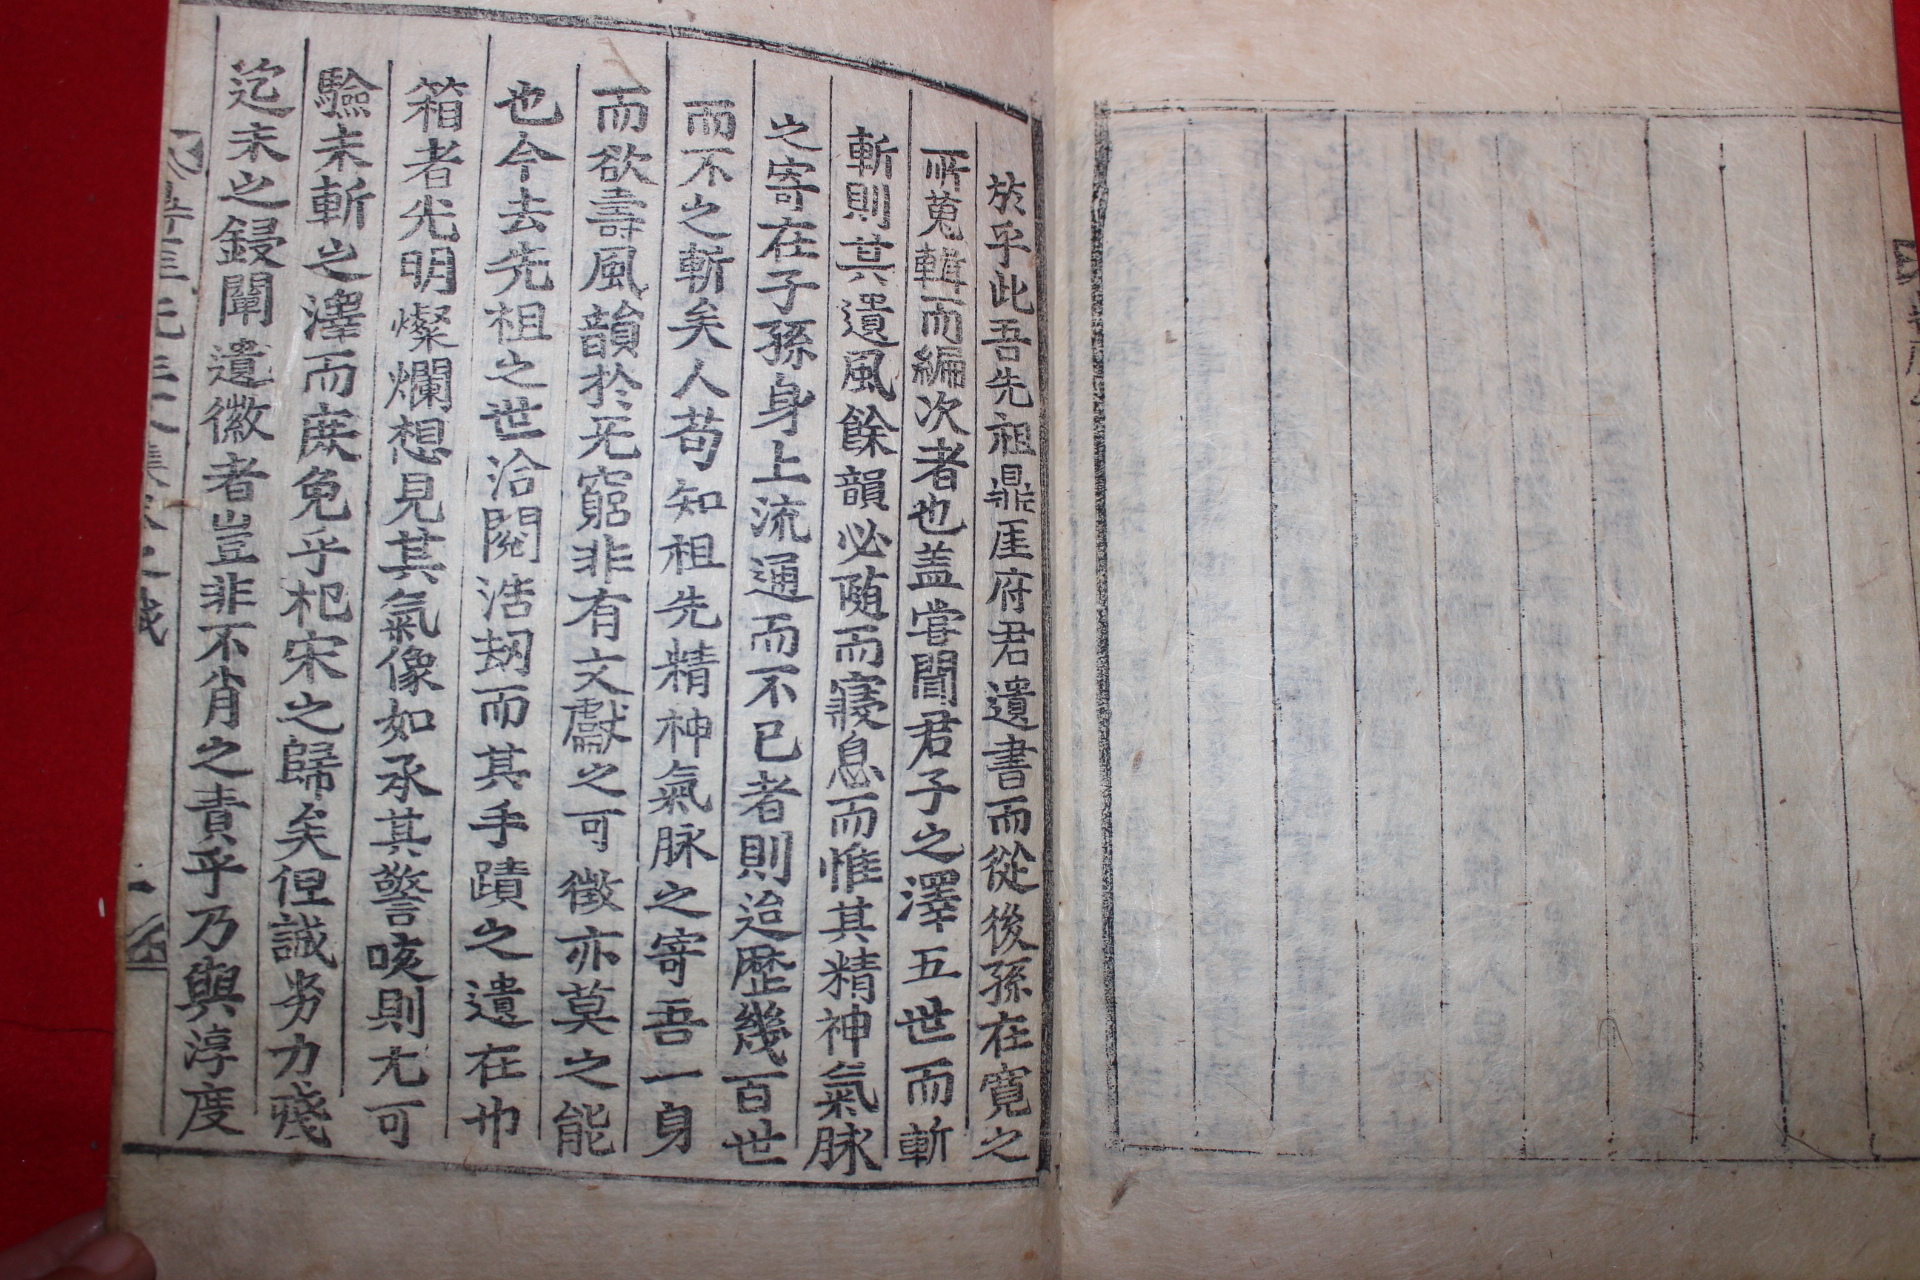 於乎此吾先祖鼎厓府君遺書而從後孫在寬之
所蒐輯而編次者也盖嘗聞君子之澤五世而斬
斬則其遺風餘韻必随而寢息而惟其精神氣脉
之寄在子孫身上流通而不已者則迨歷幾百世
而不之斬矣人苟知祖先精神氣脉之寄吾一身
而欲壽風韻於无窮非有文獻之可徵亦莫之能
也今去先祖之世洽閱浩刧而其手蹟之遺在巾
箱者光明燦爛想見其氣像如承其警咳則尤可
驗未斬之澤而庶免乎杞宋之歸矣但誠劣力殘
迄未之鋟闡遺徽者豈非不肖之責乎乃與淳度